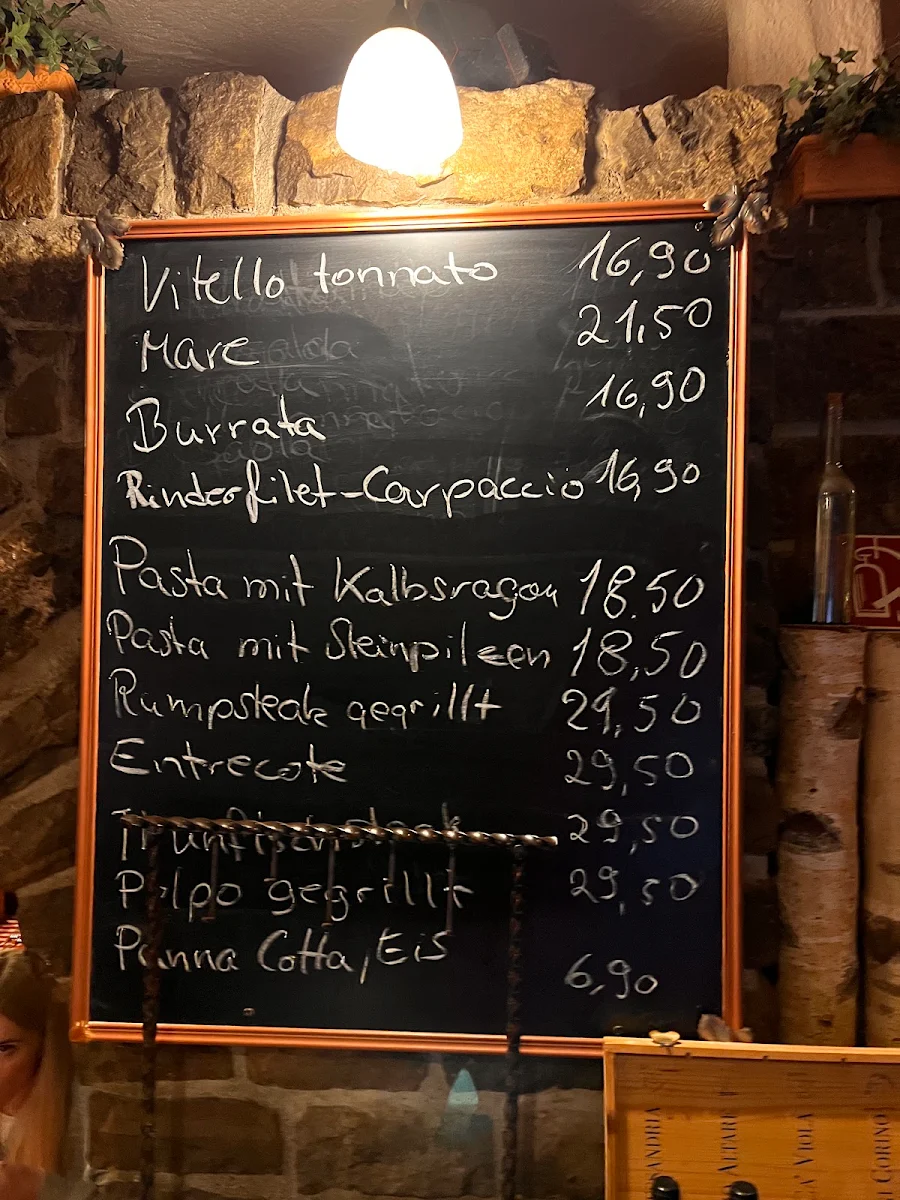 Vitello tonnato 16,90
Mare 21,50
Burrata 16,90
Rinderfilet-Carpaccio 16,90
Pasta mit Kalbsragou 18.50
Pasta mit Steinpilzen 18,50
Rumpsteak gegrillt 29,50
Entrecote 29,50
Thunfischsteak 29,50
Polpo gegrillt 29,50
Panna Cotta, Eis 6,90
ANDRIA
ALTARE
VIOLA
GORINO